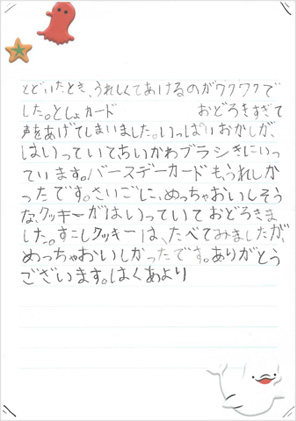 とどいたとき、うれしくてあけるのがワクワクで
した。としょカード　　　　　おどろきすぎて
声をあげてしまいました。いっぱいおかしが、
はいっていてちいかわブラシきにいっ
ています。バースデーカードもうれしか
ったです。さいごに、めっちゃおいしそう
な、クッキーがはいっていておどろきま
した。すこしクッキーは、たべてみましたが、
めっちゃおいしかったです。ありがとう
ございます。はくあより